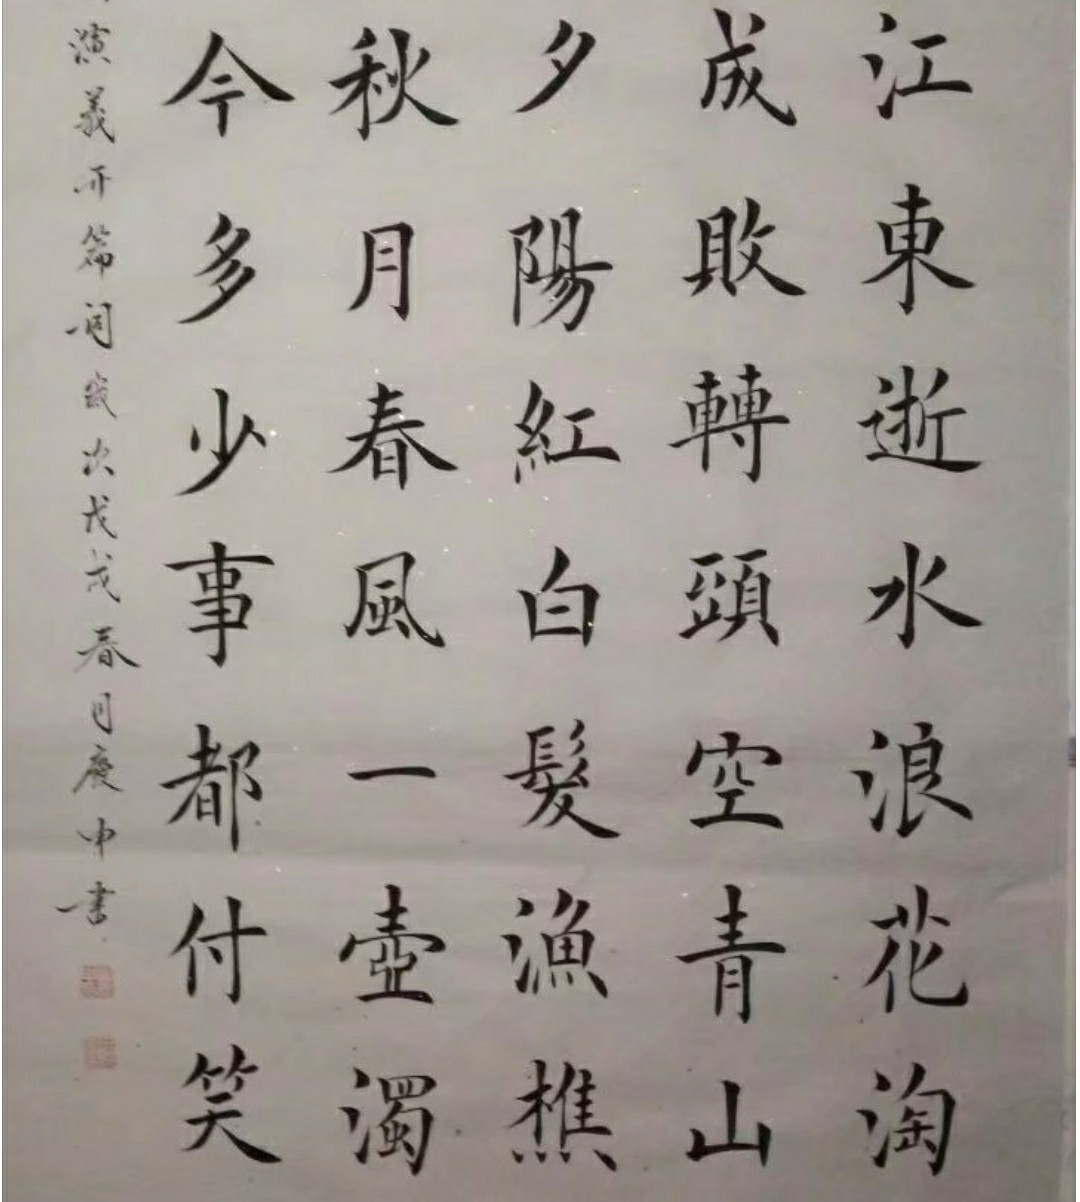 江東逝水浪花淘
成敗轉頭空青山
夕陽紅白髮漁樵
秋月春風一壺濁
今多少事都付笑
演義开篇词歲次戊戌春月慶中书